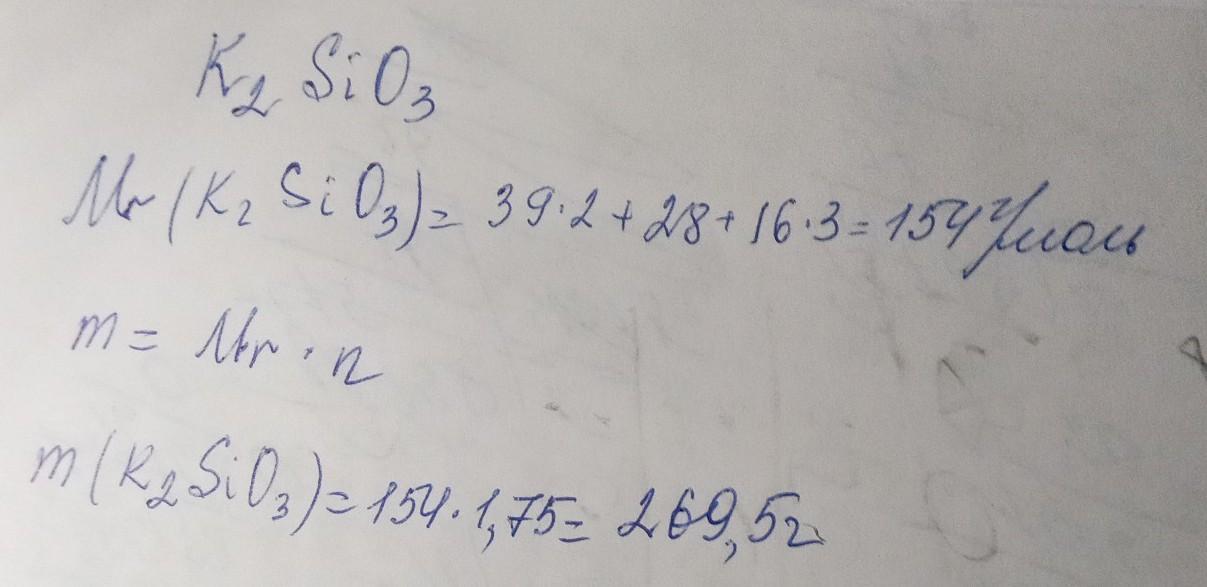 K₂ SiO₃
Mr (K₂ SiO₃) = 39·2 + 28 + 16·3 = 154 г/моль
m = Mr · n
m (K₂SiO₃) = 154 · 1,75 = 269,5г